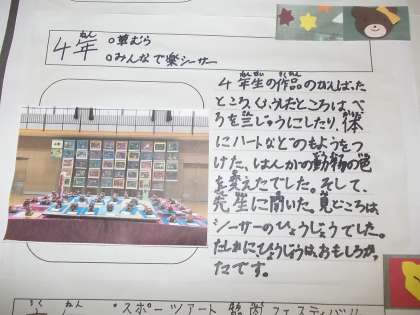 4年
ねん
○草むら
○みんなで楽シーサー
4年生の作品のがんばった
ねんせい さくひん
ところ、くふうしたところは、べ
ろを三じゅうにしたり、体
にハートなどのもようをつ
けた、ほんかの動物の色
を変えたでした。そして、
先生に聞いた。見どころは、
シーサーのひょうじょうでした。
たしかに、ひょうじょうは、おもしろかっ
たです。
・スポーツアート
フェスティバル